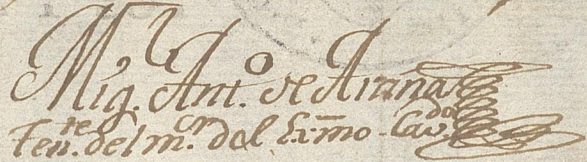 Mig.l Ant.o de Arana
Ten.te del m.or del Ex.mo Cav.do